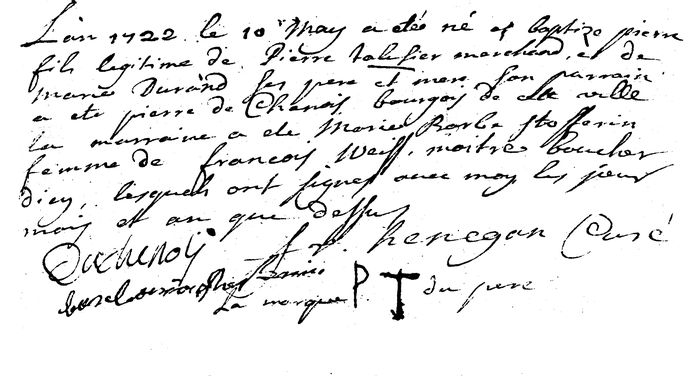 L'an 1722 le 10r May a eté né et baptizé pierre
fils legitime de Pierre marchand, et de
Marie Durand ses pere et mere son parrain
a eté pierre de Chenois bourgois de ville
la marraine a eté Marie Barbe Stofferin
femme de francois Weiss, maitre boucher
dicy, lesquels ont signes avec moy les jour
mois et an que dessus
Duchenois f. r. henegan Curé
La marque P T du pere